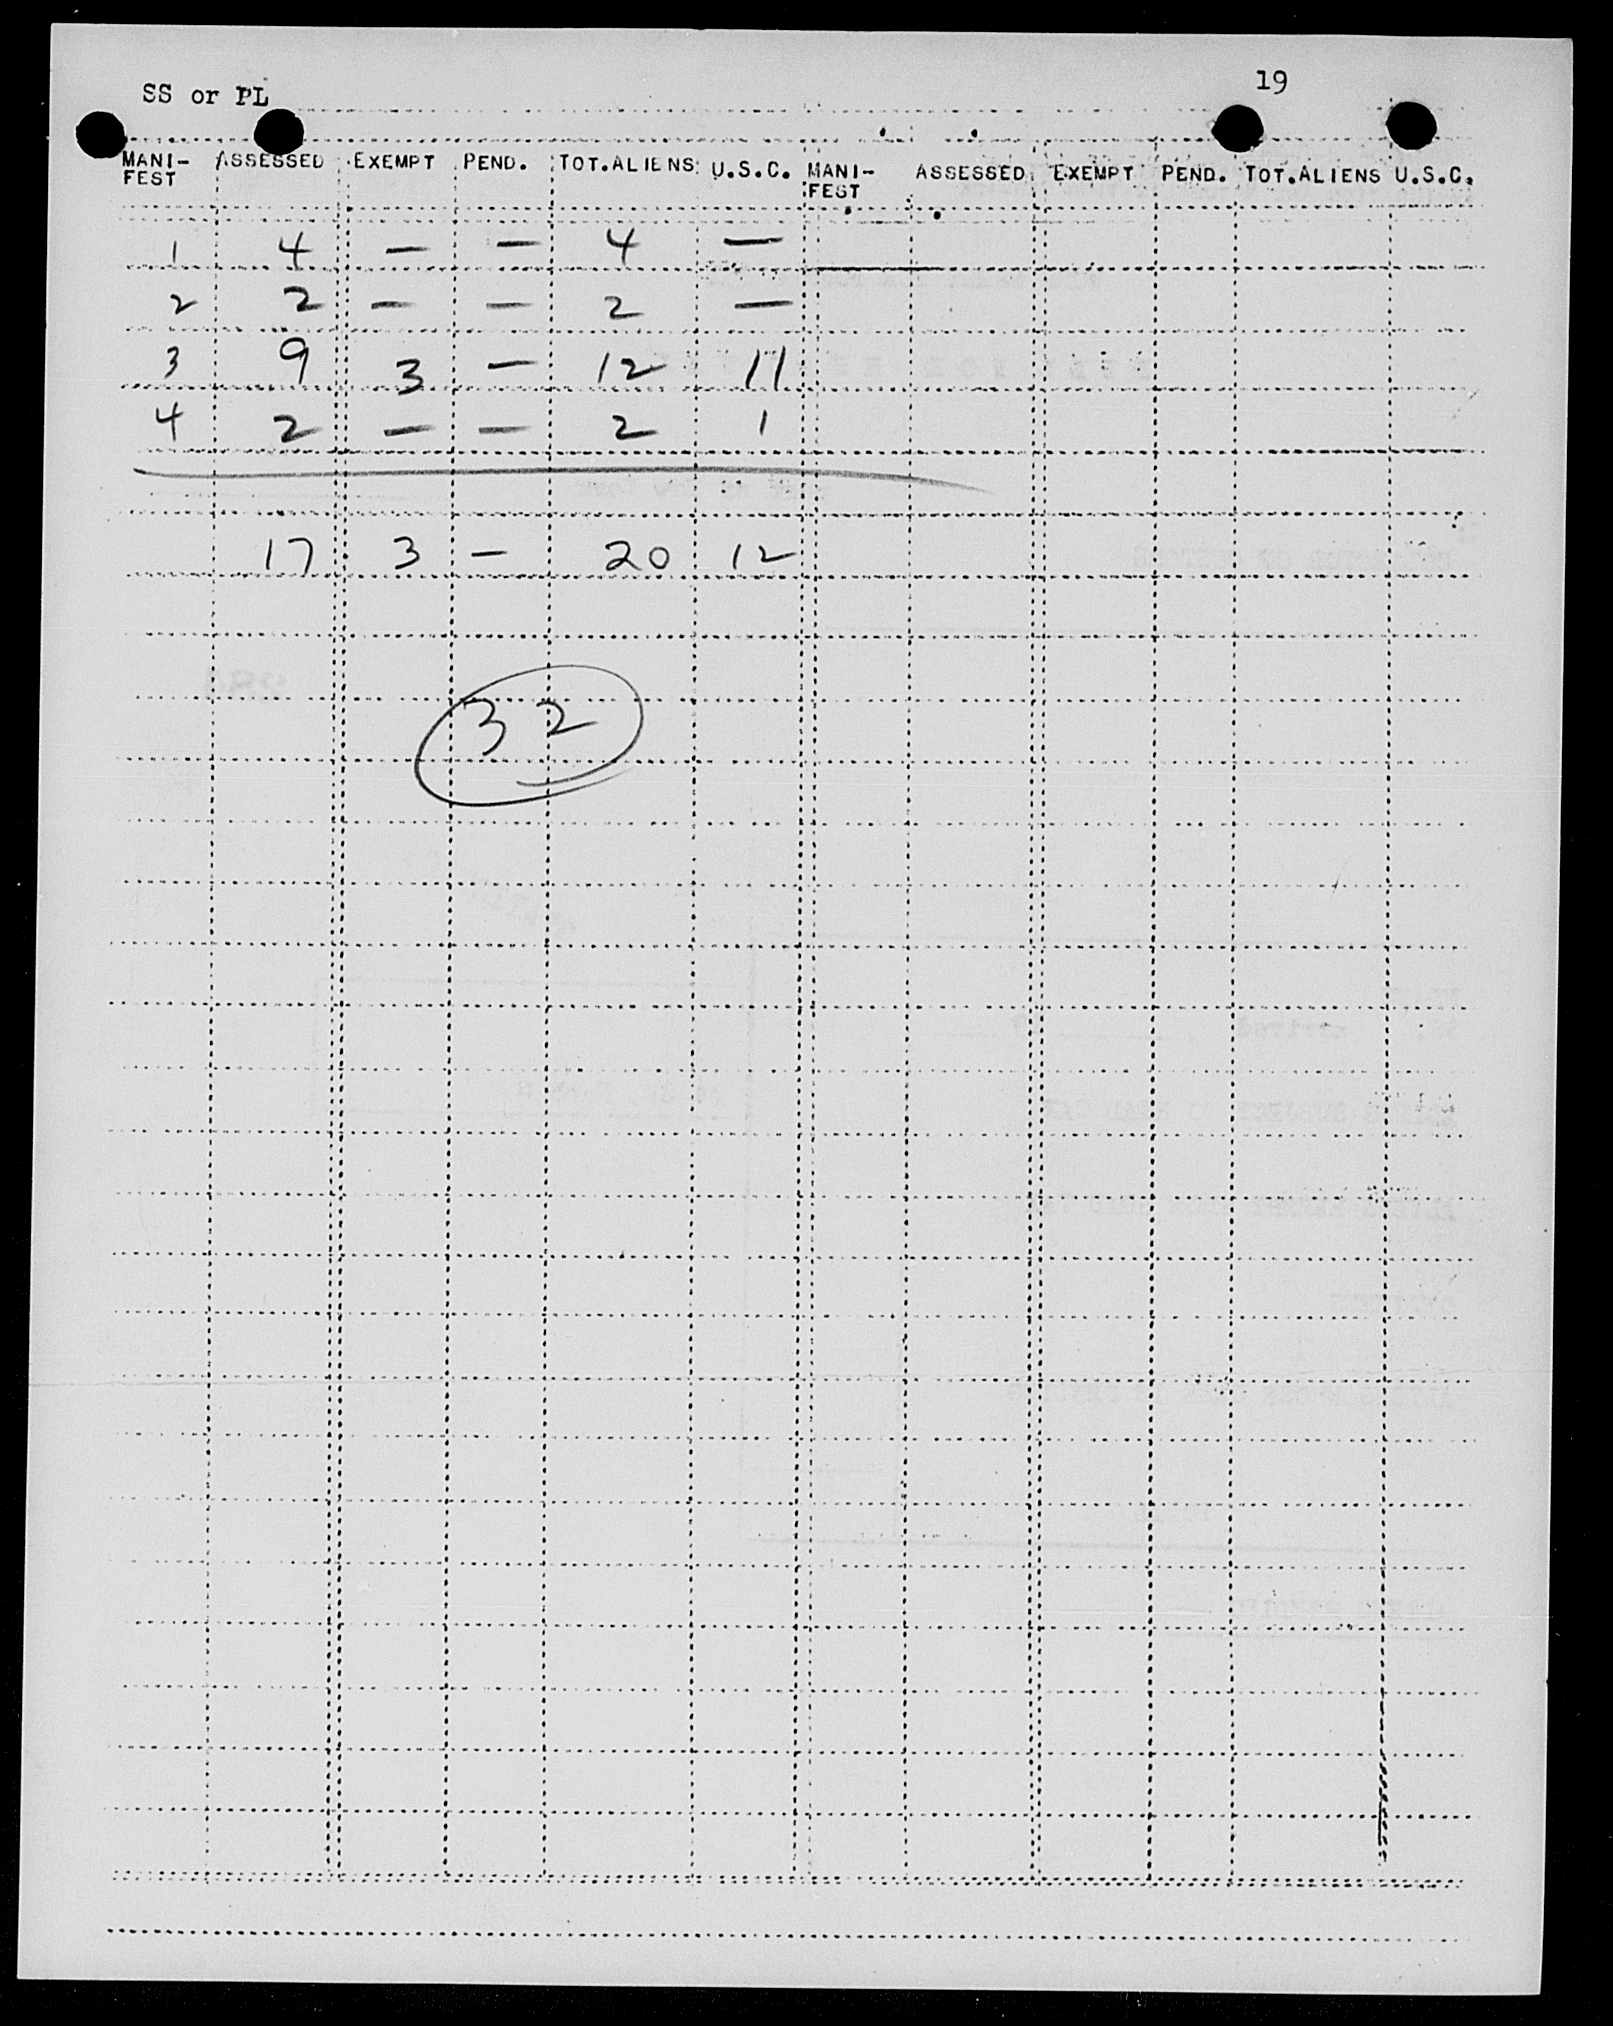 SS or PL 19
MANI-FEST ASSESSED EXEMPT PEND. TOT.ALIENS U.S.C. MANI-FEST ASSESSED EXEMPT PEND. TOT.ALIENS U.S.C.
1 4 — — 4 —
2 2 — — 2 —
3 9 3 — 12 11
4 2 — — 2 1
17 3 — 20 12
32